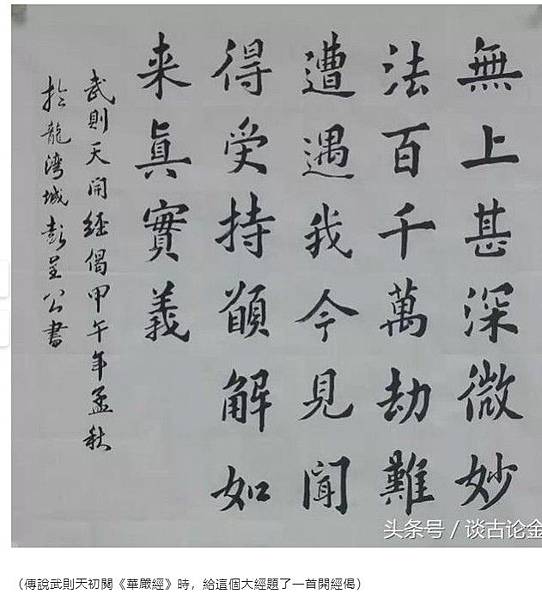 無上甚深微妙
法百千萬劫難
遭遇我今見聞
得受持願解如
来眞實義
武則天開經偈甲午年孟秋
扵龍湾城彭呈公書
头条号 / 谈古论金
（傳說武則天初閱《華嚴經》時，給這個大經題了一首開經偈）